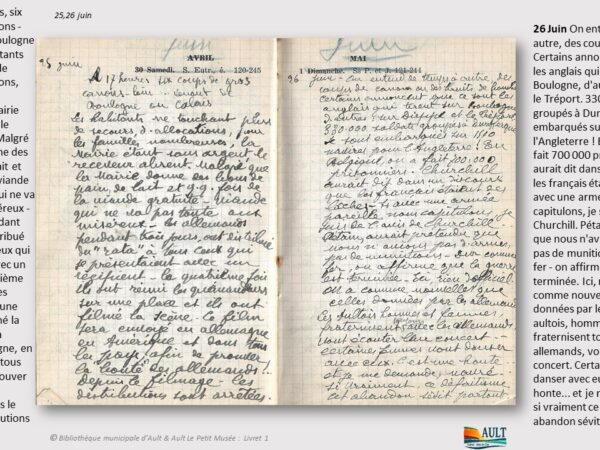 25,26 juin
s, six
ons -
oulogne
tants
le
ons,
airie
le
Malgré
ne des
ait et
viande
ui ne va
éreux -
dant
ribué
eux qui
vec un
ième
es
une
né la
gne, en
tous
ouver
s le
utions
juin
AVRIL
30 Samedi. S. Eutr., é. 120-245
25 juin
A 17 heures six coups de gros
canons - loin - venant de
Boulogne ou Calais
Les habitants ne touchant plus
de secours, d'allocations, pour
les familles nombreuses, la
Mairie étant sans argent le
receveur absent. Malgré que
la Mairie donne des bons de
pain, de lait et q.q. fois de
la viande gratuite - viande
qui ne va pas toute aux
miséreux - les allemands
pendant trois jours, ont distribué
du "rata" à tous ceux qui
se présentaient avec un
récipient - la quatrième fois
ils ont réuni les quémandeurs
sur une place et ils ont
filmé la scène. Le film
sera envoyé en allemagne
en Amérique et dans tous
les pays afin de prouver
la bonté des allemands !
Depuis le filmage - les
distributions sont arrêtées
juin
MAI
1 Dimanche. Ss P. et J. 121-244
26 juin - On entend de temps à autre, des
coups de canons ou des bruits de bombes
Certains annoncent que ce sont les
anglais qui tirent sur Boulogne
d'autres sur Dieppe et le Tréport
330.000 soldats groupés à Dunkerque
se sont embarqués sur 1100
navires pour l'Angleterre ! En
Belgique on a fait 700.000
prisonniers. Churchill
aurait dit dans un discours
que les français étaient des
lâches - Si avec une armée
pareille nous capitulons, je
suis de l'avis de Churchill -
Pétain aurait proclamé que
nous n'avions pas d'armes,
pas de munitions - D'or comme
fer - on affirme que la guerre
est terminée. Ici, rien d'officiel
on a comme nouvelles que
celles données par les allemands
les aultois hommes et femmes,
fraternisent avec les allemands
vont écouter leur concert -
certaines femmes vont danser
avec eux. C'est une honte -
et je me demande, navré -
si vraiment ce défaitisme
cet abandon sévit partout
26 Juin On ent
autre, des cou
Certains anno
les anglais qui
Boulogne, d'au
le Tréport. 330
groupés à Dun
embarqués su
l'Angleterre ! E
fait 700 000 pr
aurait dit dans
les français éta
avec une arme
capitulons, je s
Churchill. Péta
que nous n'av
pas de munitio
fer - on affirm
terminée. Ici, r
comme nouve
données par le
aultois, homm
fraternisent to
allemands, vo
concert. Certa
danser avec eu
honte... et je r
si vraiment ce
abandon sévit
© Bibliothèque municipale d'Ault & Ault Le Petit Musée : Livret 1
AULT